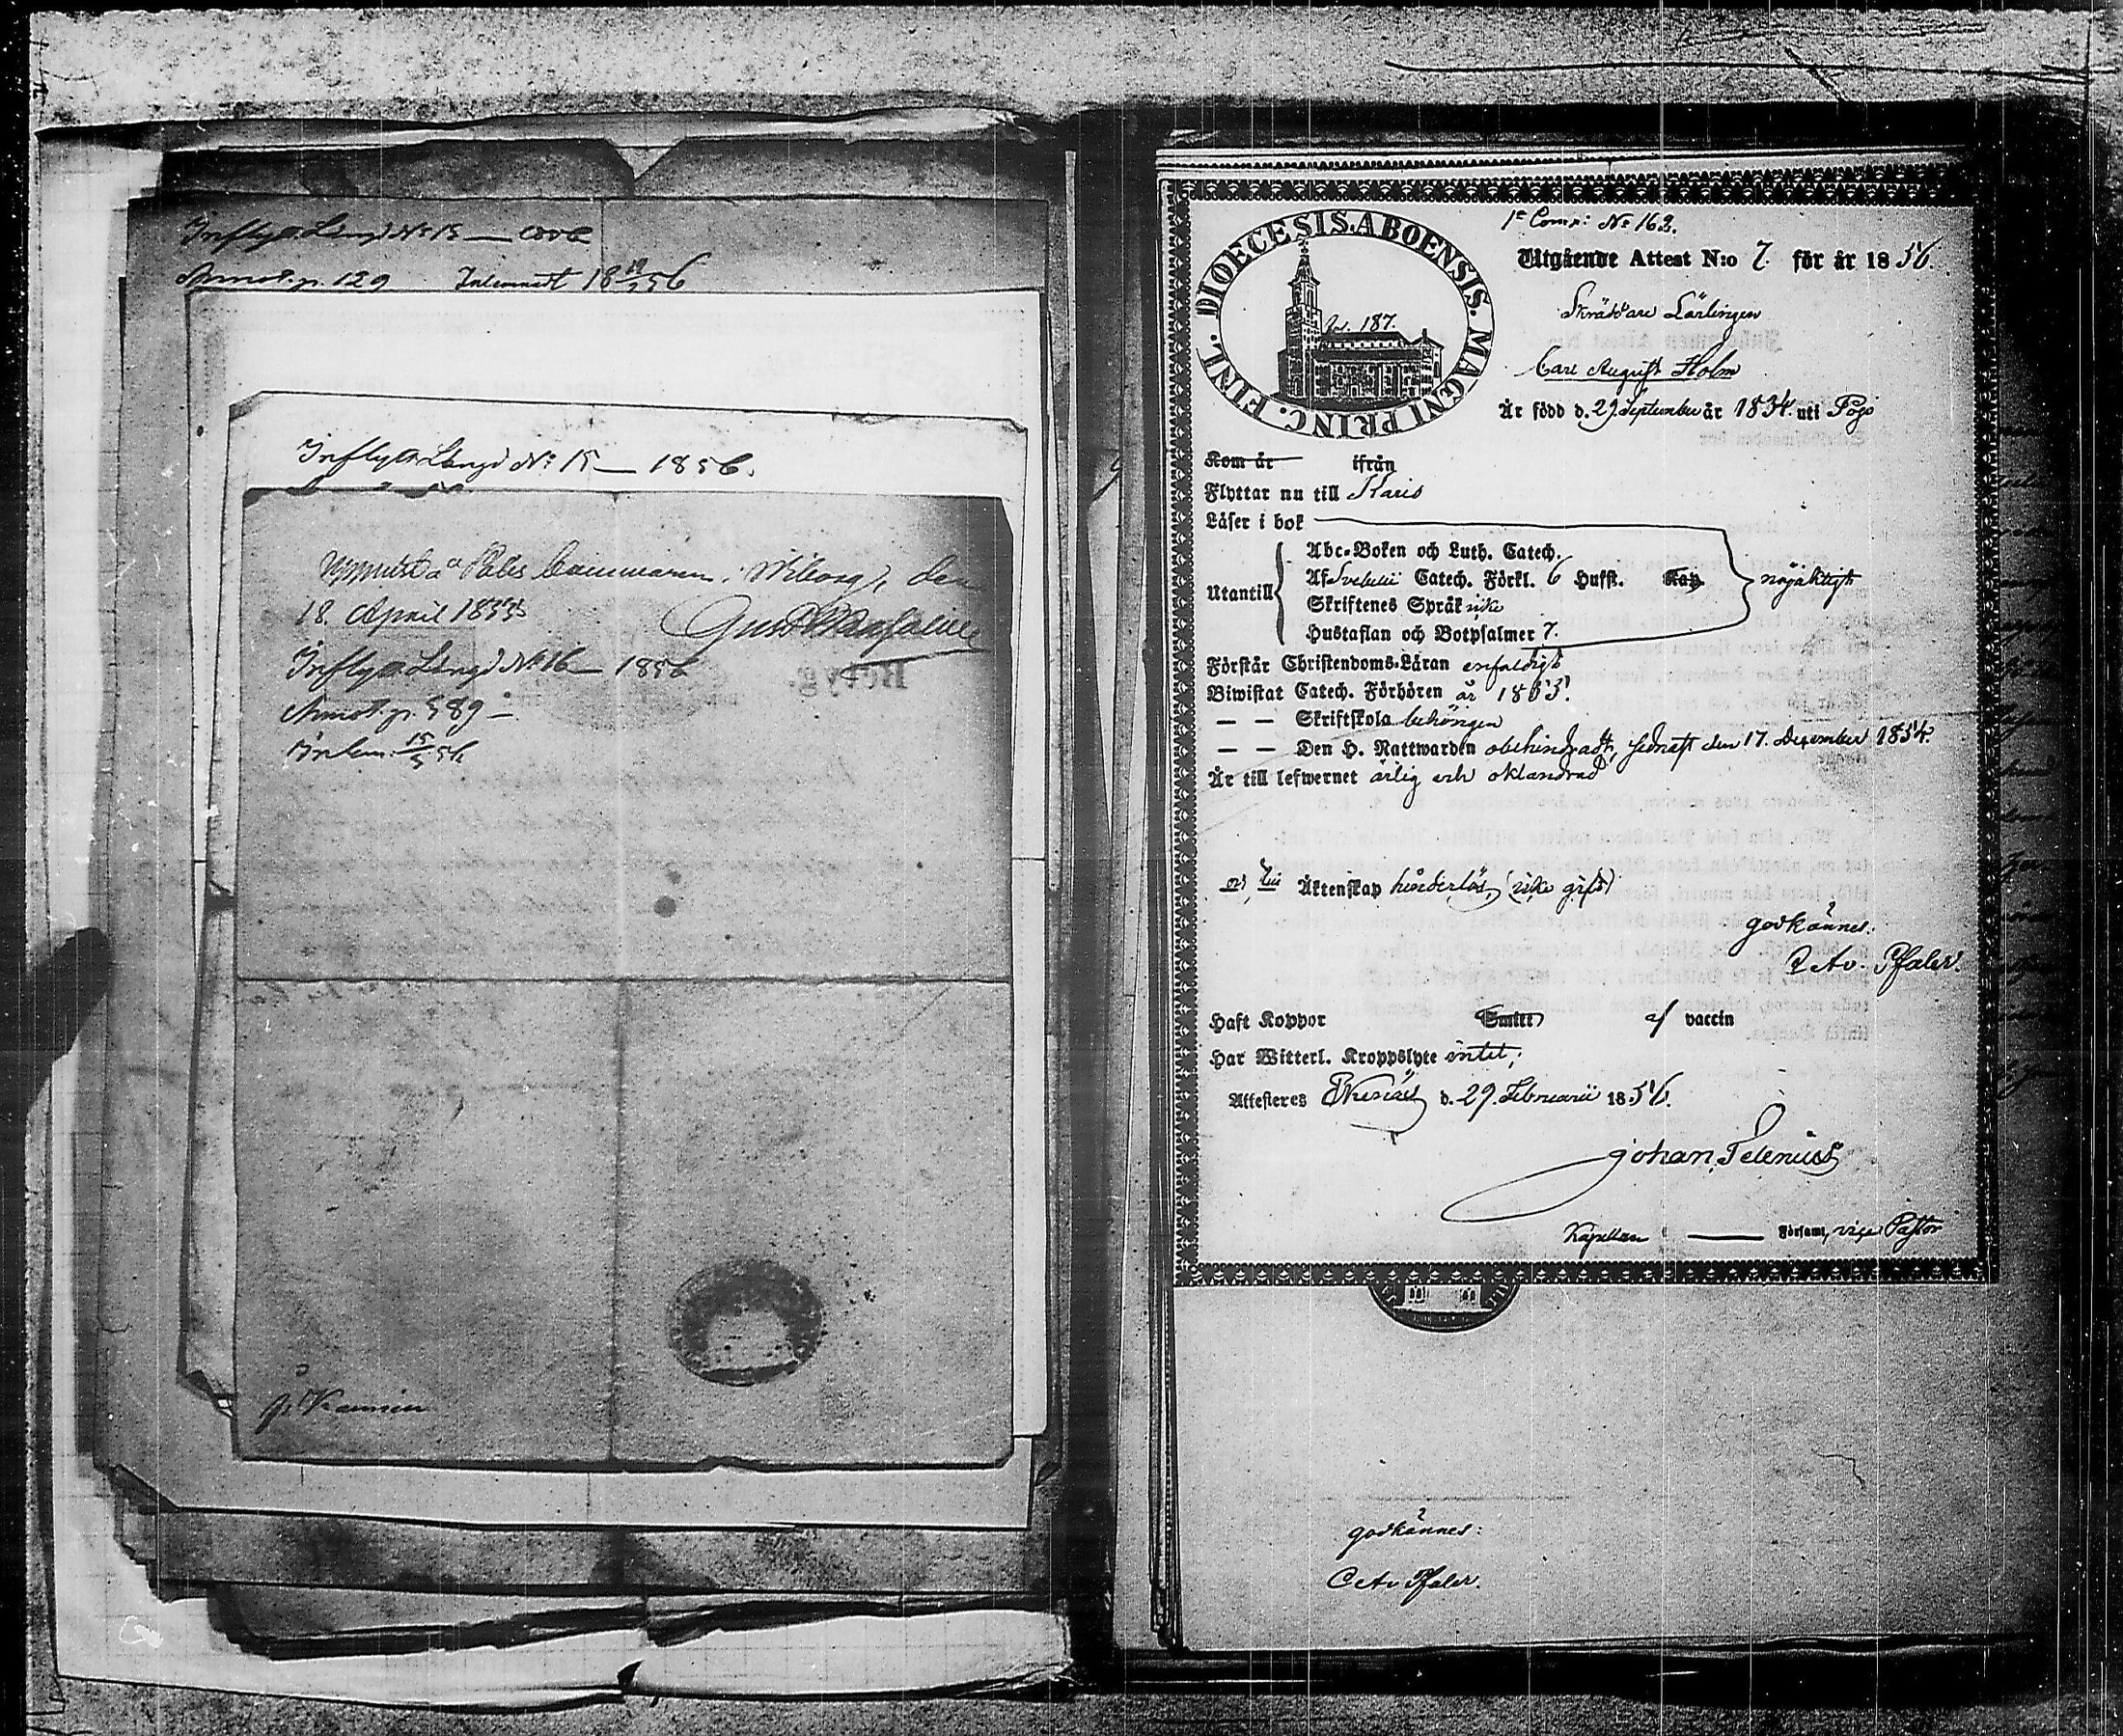 Inflyttn. Längd No 15 — 1856
Annot. p. 129 Inlemnadt 18 19/3 56
Inflyttn. Längd No 15 — 1856.
Uppvist å Polis Cammaren i Wiborg, den
18. April 1855
Inflyttn. Längd No 16 — 1856
Annot. p. 589 —
Inlem. 15/5 56
Betyg.
DIOECESIS. ABOENSIS. MAGNI PRINC. FINL.
p. 187.
1e Comp: No 162.
Utgående Attest N:o 7. för år 1856.
Skräddare Lärlingen
Carl August Holm
Är född d. 29 September år 1834. uti Pojo
Kom år ifrån
Flyttar nu till Karis
Läser i bok
Utantill
Abc-Boken och Luth. Catech.
Af Svebelii Catech. Förkl. 6 Hufst. Kap.
Skriftenes Språk icke
Hustaflan och Botpsalmer 7.
nöjaktigt
Förstår Christendoms-Läran enfaldigt
Biwistat Catech. Förhören år 1855.
— — Skriftskola behörigen
— — Den H. Nattwarden obehindradt, sednast den 17. December 1854.
Är till lefwernet ärlig och oklandrad
och till Äktenskap hinderlös (icke gift)
godkännes:
Pfaler.
Haft Koppor Smitt af vaccin
Har Witterl. Kroppslyte intet;
Attesteres Ekenäs d. 29. Februarii 1856.
Johan Telenius
Kapellan Församl, vice Pastor
godkännes:
Pfaler.